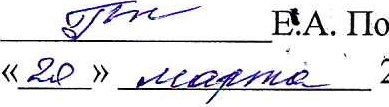 Е.А. По
«20» марта 2